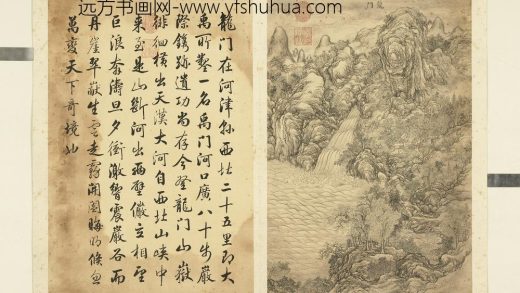 远方书画网-www.yfshuhua.com
龍門
龍門在河津縣西北二十五里即大
禹所鑿一名禹門河口廣八十步巖
際鐫跡遺功尚存今登龍門山嶽
徘徊橫出天漢大河自西北山峽中
來至是山斷河出兩壁儼立相望
巨浪奔濤旦夕衝激響震巖谷而
丹崖翠巘生雲走霧開闔晦明倏忽
萬變天下奇境也